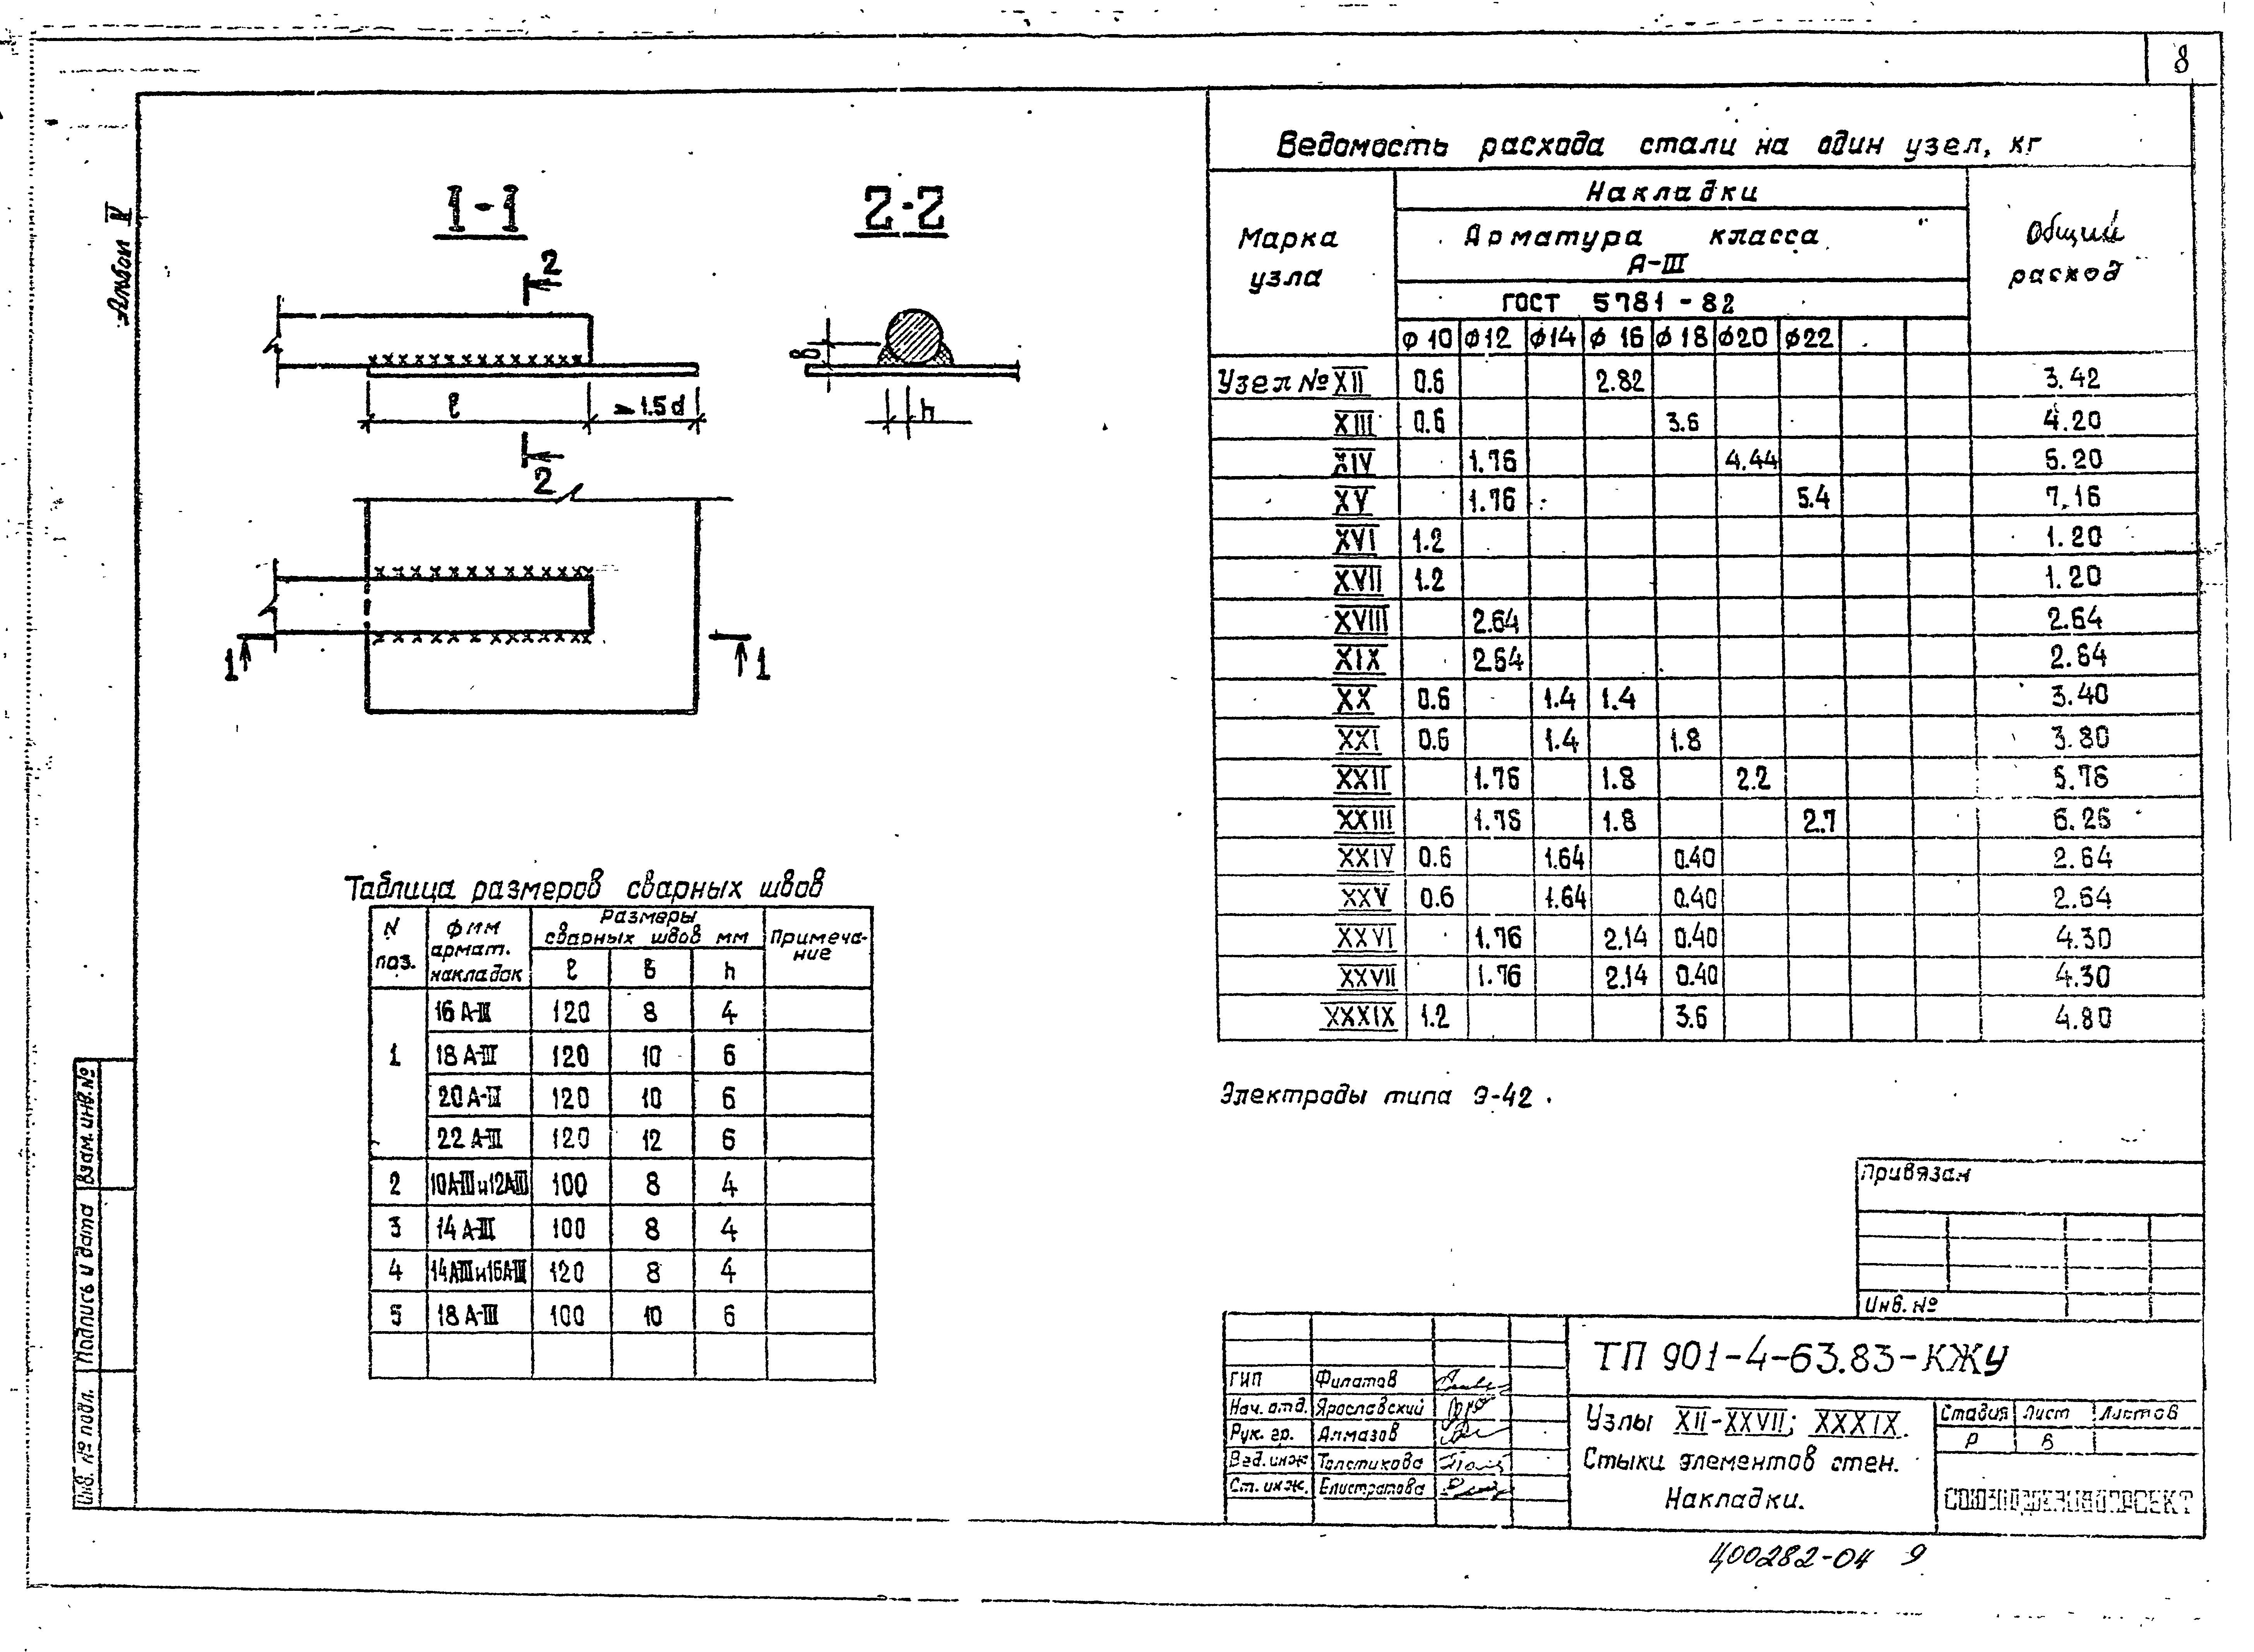 8
Альбом IV
1-1
2-2
2
ℓ
≥1.5d
2
в
h
1
1
Таблица размеров сварных швов
N поз. | ф мм армат. накладок | Размеры сварных швов мм | Примечание
ℓ | в | h
1 | 16 А-III | 120 | 8 | 4
18 А-III | 120 | 10 | 6
20 А-III | 120 | 10 | 6
22 А-III | 120 | 12 | 6
2 | 10А-III и 12А-III | 100 | 8 | 4
3 | 14 А-III | 100 | 8 | 4
4 | 14А-III и 16А-III | 120 | 8 | 4
5 | 18 А-III | 100 | 10 | 6
Ведомость расхода стали на один узел, кг
Марка узла | Накладки | Общий расход
Арматура класса А-III
ГОСТ 5781-82
ф 10 | ф12 | ф14 | ф 16 | ф 18 | ф20 | ф22
Узел № XII | 0.6 | 2.82 | 3.42
XIII | 0.6 | 3.6 | 4.20
XIV | 1.76 | 4.44 | 5.20
XV | 1.76 | 5.4 | 7.16
XVI | 1.2 | 1.20
XVII | 1.2 | 1.20
XVIII | 2.64 | 2.64
XIX | 2.64 | 2.64
XX | 0.6 | 1.4 | 1.4 | 3.40
XXI | 0.6 | 1.4 | 1.8 | 3.80
XXII | 1.76 | 1.8 | 2.2 | 5.76
XXIII | 1.76 | 1.8 | 2.7 | 6.26
XXIV | 0.6 | 1.64 | 0.40 | 2.64
XXV | 0.6 | 1.64 | 0.40 | 2.64
XXVI | 1.76 | 2.14 | 0.40 | 4.30
XXVII | 1.76 | 2.14 | 0.40 | 4.30
XXXIX | 1.2 | 3.6 | 4.80
Электроды типа Э-42.
Привязан
Инв. №
ТП 901-4-63.83-КЖУ
ГИП Филатов
Нач. отд. Ярославский
Рук. гр. Алмазов
Вед. инж Толстикова
Ст. инж. Елистратова
Узлы XII-XXVII; XXXIX.
Стыки элементов стен.
Накладки.
Стадия Лист Листов
Р 8
СОЮЗВОДОКАНАЛПРОЕКТ
Взам. инв. №
Подпись и дата
Инв. № подл.
Ц00282-04 9